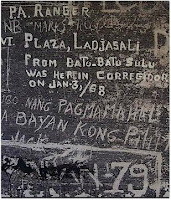 P.A. RANGER
NB
VT. PLAZA, LADJASALI
FROM BATO-BATO SULU
WAS HEREIN CORREGIDOR
ON JAN-3,/68
NANG PAGMAMAHAL
A BAYAN KONG
79